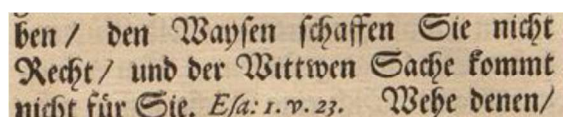 ben / den Waysen schaffen Sie nicht
Recht / und der Wittwen Sache kommt
nicht für Sie. Esa: 1. v. 23. Wehe denen/